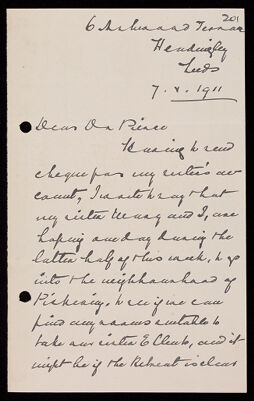 201
6 Ashwood Terrace
Headingley
Leeds
7. X. 1911
Dear Dr Pierce
Having to send
cheque for my sister's ac
count, I write to say that
my sister Mary and I, are
hoping one day during the
latter half of this week, to go
into the neighbourhood of
Pickering, to see if we can
find any rooms suitable to
take our sister E to, and it
might be if the Retreat is clear